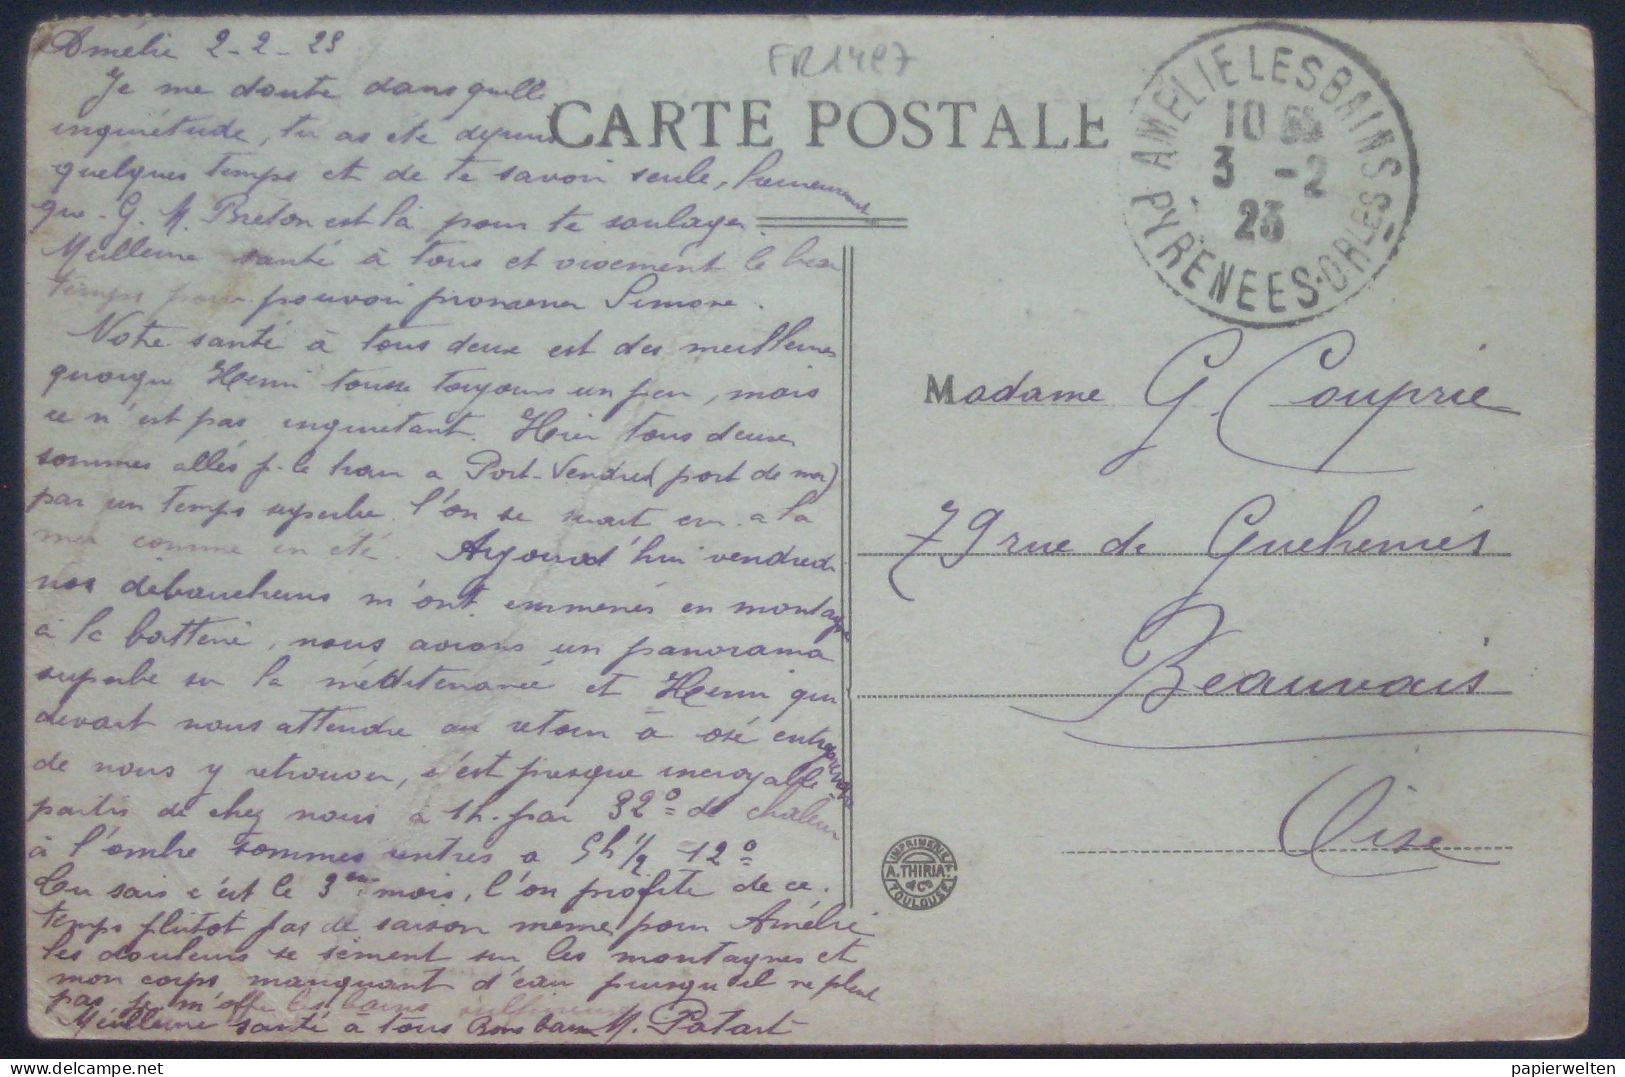 Amélie 2-2-23
Je me doute dans quelle
inquiétude, tu as été depuis
quelques temps et de te savoir seule, heureusement
que G. M. Breton est là pour te soulager.
Meilleure santé à tous et vivement le beau
temps pour pouvoir promener Simone.
Notre santé à tous deux est des meilleures
quoique Henri tousse toujours un peu, mais
ce n'est pas inquiétant. Hier tous deux
sommes allés p. le train a Port-Vendres (port de mer)
par un temps superbe. l'on se serait cru a la
mer comme en été. Aujourd'hui vendredi
nos débaucheurs m'ont emmenés en montagne
à la batterie, nous avions un panorama
superbe sur la méditeranée et Henri qui
devait nous attendre au retour à osé entreprendre
de nous y retrouver, c'est presque incroyable
partis de chez nous a 1h. par 32° de chaleur
à l'ombre sommes rentrés a 5h 1/2 12°
Tu sais c'est le 3eme mois, l'on profite de ce
temps plutot pas de saison même pour Amélie
les douleurs se sèment sur les montagnes et
mon corps manquant d'eau puisqu'il ne pleut
pas je m'offre les bains sulfureux
Meilleure santé à tous Bons baisers M. Patart
FR1497
CARTE POSTALE
AMELIE LES BAINS
10
3 -2
23
PYRENEES-ORLES-
Madame G. Couprie
79 rue de Guehenies
Beauvais
Oise
IMPRIMERIE
A. THIRIAT
& Cie
TOULOUSE
papierwelten